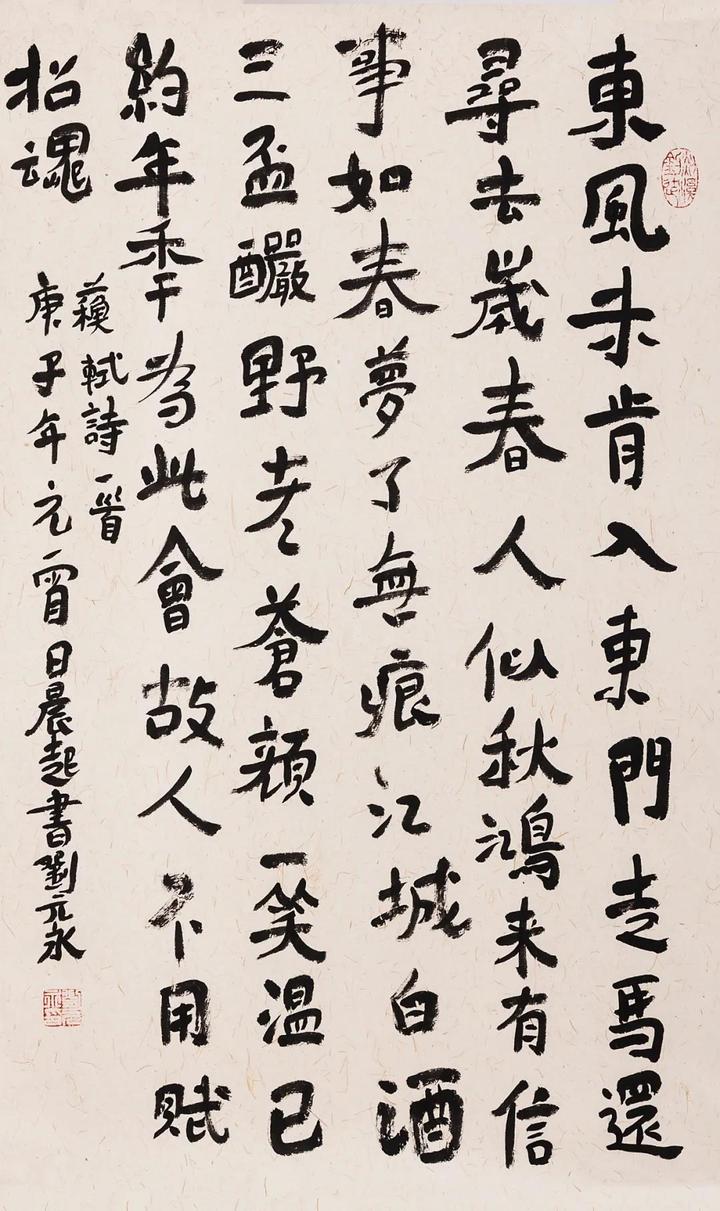 東風未肯入東門走馬還
尋去歲春人似秋鴻来有信
事如春夢了無痕江城白酒
三盃釅野老蒼顏一笑温已
約年秊為此會故人不用賦
招魂
蘇軾詩一首
庚子年元宵日晨起書劉元永